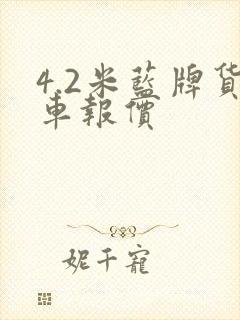 4.2米藍牌貨
車報價
妮千寵